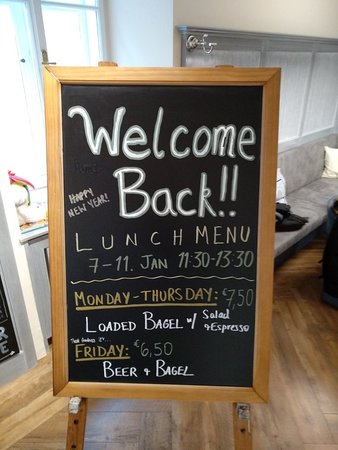 Welcome
HAPPY
NEW YEAR!
Back!!
LUNCH MENU
7-11. JAN 11:30-13:30
MONDAY-THURSDAY: €7,50
LOADED BAGEL w/ Salad
& Espresso
FRIDAY: €6,50
BEER & BAGEL